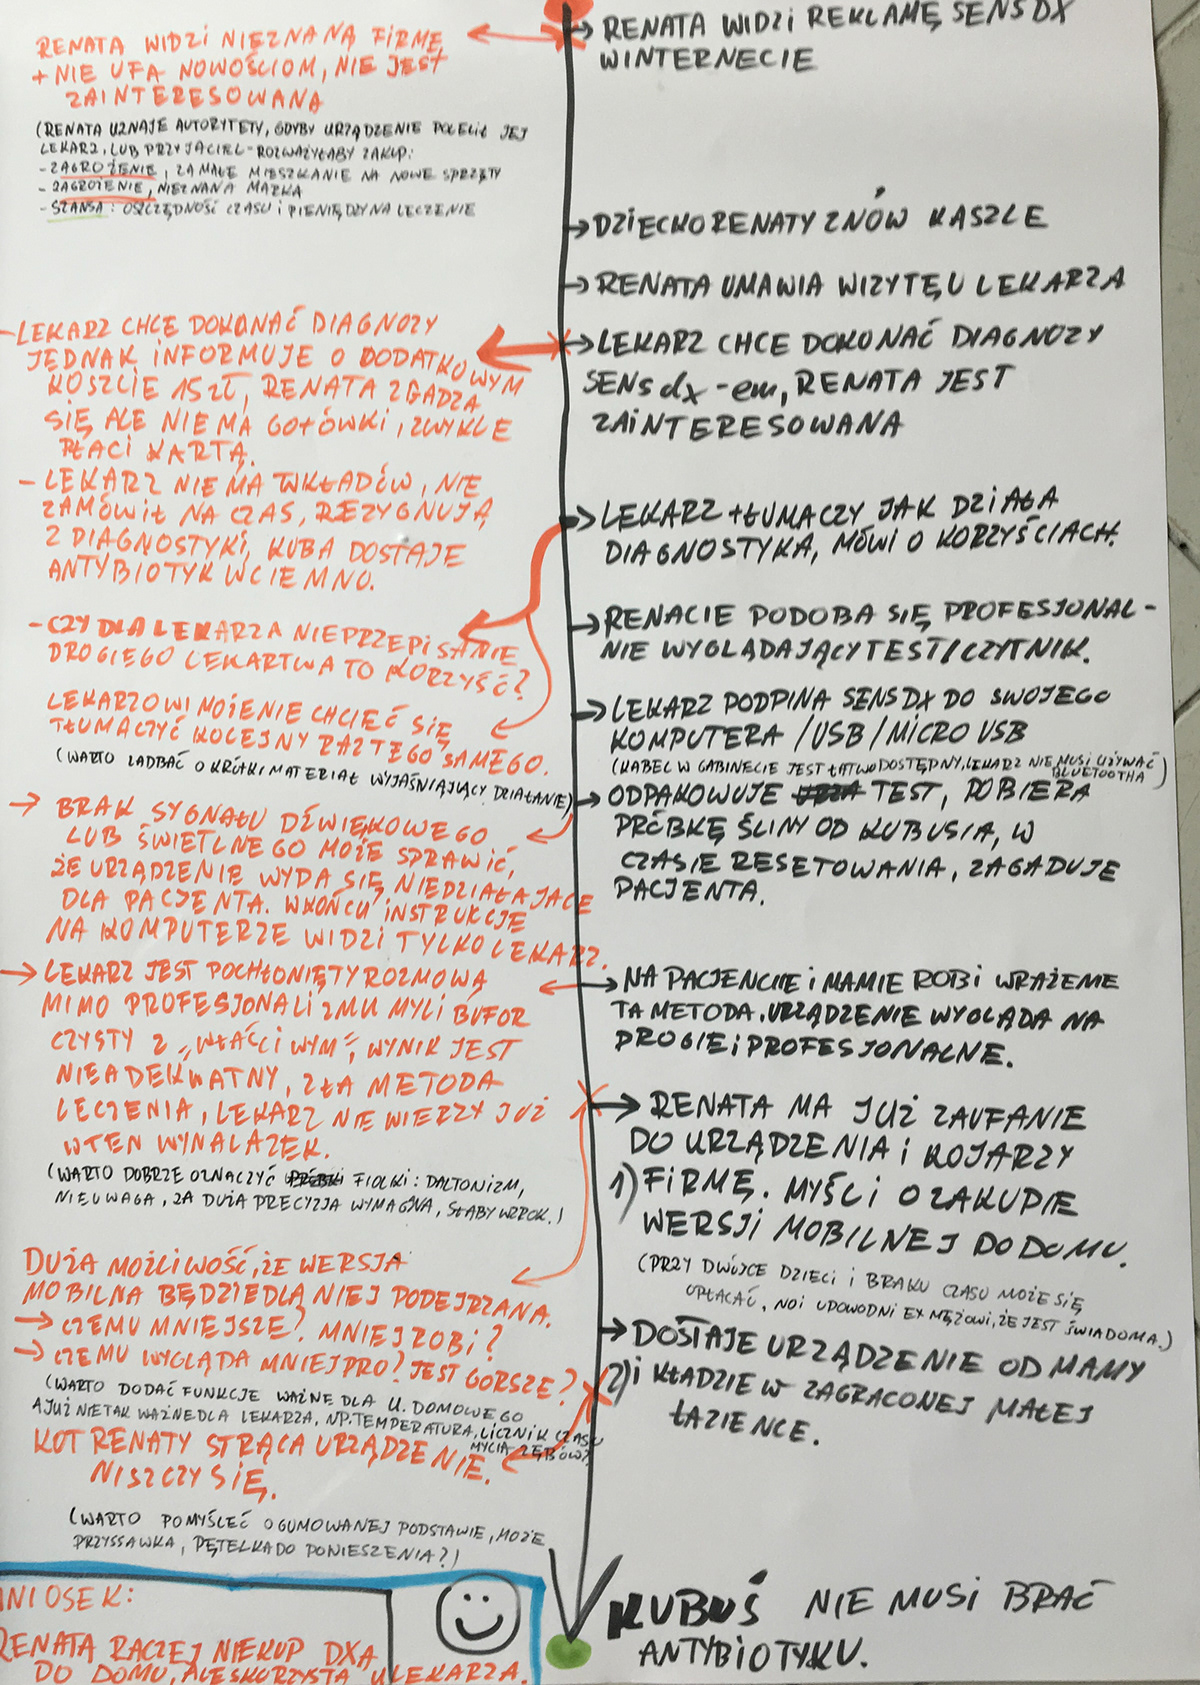 RENATA WIDZI NIEZNANĄ FIRMĘ
+ NIE UFA NOWOŚCIOM, NIE JEST
ZAINTERESOWANA
(RENATA UZNAJE AUTORYTETY, GDYBY URZĄDZENIE POLECIŁ JEJ
LEKARZ, LUB PRZYJACIEL - ROZWAŻYŁABY ZAKUP:
- ZAGROŻENIE, ZA MAŁE MIESZKANIE NA NOWE SPRZĘTY
- ZAGROŻENIE, NIEZNANA MARKA
- SZANSA: OSZCZĘDNOŚĆ CZASU I PIENIĘDZY NA LECZENIE
- LEKARZ CHCE DOKONAĆ DIAGNOZY
JEDNAK INFORMUJE O DODATKOWYM
KOSZCIE 15 ZŁ, RENATA ZGADZA
SIĘ ALE NIE MA GOTÓWKI, ZWYKLE
PŁACI KARTĄ.
- LEKARZ NIE MA WKŁADÓW, NIE
ZAMÓWIŁ NA CZAS, REZYGNUJĄ
Z DIAGNOSTYKI, KUBA DOSTAJE
ANTYBIOTYK W CIEMNO.
- CZY DLA LEKARZA NIEPRZEPISANIE
DROGIEGO LEKARTWA TO KORZYŚĆ?
LEKARZOWI MOŻE NIE CHCIEĆ SIĘ
TŁUMACZYĆ KOLEJNY RAZ TEGO SAMEGO.
(WARTO ZADBAĆ O KRÓTKI MATERIAŁ WYJAŚNIAJĄCY DZIAŁANIE)
→ BRAK SYGNAŁU DŹWIĘKOWEGO
LUB ŚWIETLNEGO MOŻE SPRAWIĆ,
ŻE URZĄDZENIE WYDA SIĘ NIEDZIAŁAJĄCE
DLA PACJENTA. W KOŃCU INSTRUKCJE
NA KOMPUTERZE WIDZI TYLKO LEKARZ.
→ LEKARZ JEST POCHŁONIĘTY ROZMOWĄ
MIMO PROFESJONALIZMU MYLI BUFOR
CZYSTY Z „WŁAŚCIWYM”, WYNIK JEST
NIEADEKWATNY, ZŁA METODA
LECZENIA, LEKARZ NIE WIERZY JUŻ
W TEN WYNALAZEK.
(WARTO DOBRZE OZNACZYĆ FIOLKI: DALTONIZM,
NIEUWAGA, ZA DUŻA PRECYZJA WYMAGNA, SŁABY WZROK.)
DUŻA MOŻLIWOŚĆ, ŻE WERSJA
MOBILNA BĘDZIE DLA NIEJ PODEJRZANA.
→ CZEMU MNIEJSZE? MNIEJ ROBI?
→ CZEMU WYGLĄDA MNIEJ PRO? JEST GORSZE?
(WARTO DODAĆ FUNKCJE WAŻNE DLA U. DOMOWEGO
A JUŻ NIE TAK WAŻNE DLA LEKARZA, NP. TEMPERATURA, LICZNIK CZASU
MYCIA ZĘBÓW?
KOT RENATY STRĄCA URZĄDZENIE.
NISZCZY SIĘ.
(WARTO POMYŚLEĆ O GUMOWANEJ PODSTAWIE, MOŻE
PRZYSSAWKA, PĘTELKA DO PONIESZENIA?)
NIOSEK:
RENATA RACZEJ NIE KUP DXA
DO DOMU, ALE SKORZYSTA U LEKARZA.
→ RENATA WIDZI REKLAMĘ SENSDX
W INTERNECIE
→ DZIECKO RENATY ZNÓW KASZLE
→ RENATA UMAWIA WIZYTĘ U LEKARZA
→ LEKARZ CHCE DOKONAĆ DIAGNOZY
SENSdx-em, RENATA JEST
ZAINTERESOWANA
→ LEKARZ TŁUMACZY JAK DZIAŁA
DIAGNOSTYKA, MÓWI O KORZYŚCIACH.
→ RENACIE PODOBA SIĘ PROFESJONAL-
NIE WYGLĄDAJĄCY TEST/CZYTNIK.
→ LEKARZ PODPINA SENSDX DO SWOJEGO
KOMPUTERA /USB/MICRO USB
(KABEL W GABINECIE JEST ŁATWO DOSTĘPNY, LEKARZ NIE MUSI UŻYWAĆ
BLUETOOTHA)
→ ODPAKOWUJE TEST, POBIERA
PRÓBKĘ ŚLINY OD KUBUSIA, W
CZASIE RESETOWANIA, ZAGADUJE
PACJENTA.
→ NA PACJENCIE I MAMIE ROBI WRAŻENIE
TA METODA. URZĄDZENIE WYGLĄDA NA
DROGIE I PROFESJONALNE.
→ RENATA MA JUŻ ZAUFANIE
DO URZĄDZENIA I KOJARZY
1) FIRMĘ. MYŚLI O ZAKUPIE
WERSJI MOBILNEJ DO DOMU.
(PRZY DWÓJCE DZIECI I BRAKU CZASU MOŻE SIĘ
OPŁACAĆ, NO I UDOWODNI EX MĘŻOWI, ŻE JEST ŚWIADOMA.)
→ DOSTAJE URZĄDZENIE OD MAMY
2) I KŁADZIE W ZAGRACONEJ MAŁEJ
ŁAZIENCE.
KUBUŚ NIE MUSI BRAĆ
ANTYBIOTYKU.